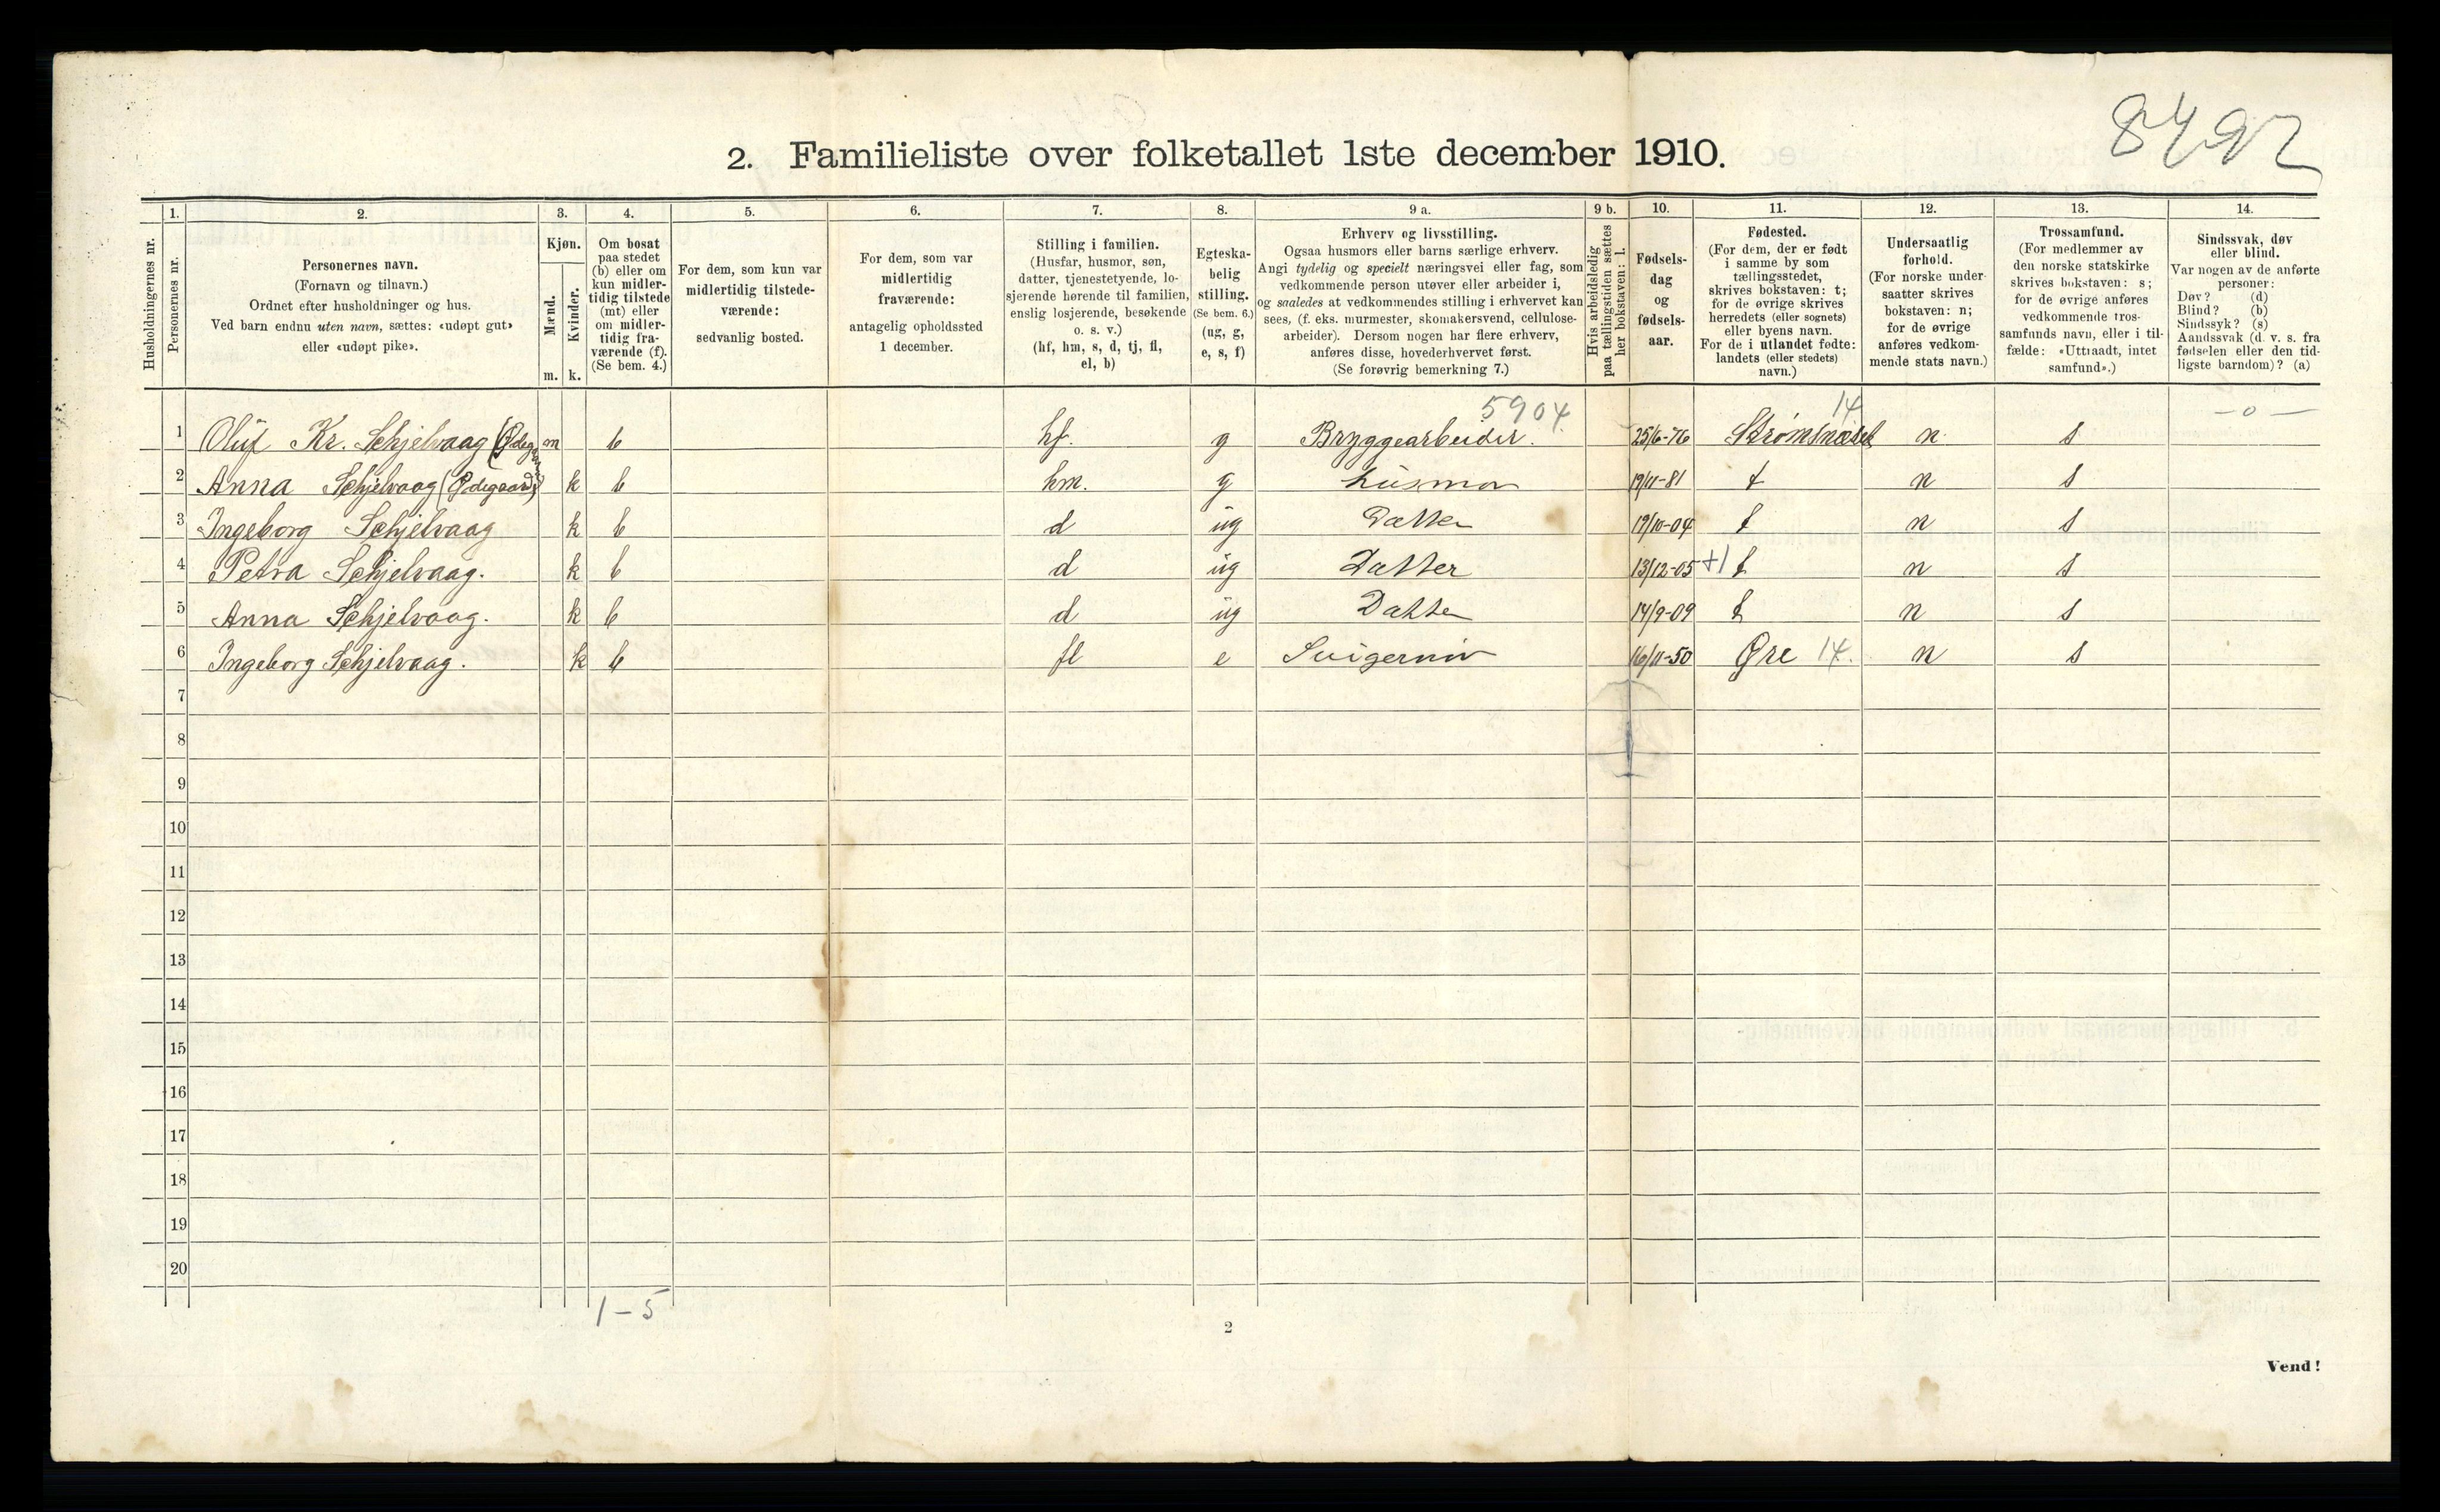 8492
2. Familieliste over folketallet 1ste december 1910.
1. 2. 3. 4. 5. 6. 7. 8. 9 a. 9 b. 10. 11. 12. 13. 14.
Husholdningernes nr.
Personernes nr.
Personernes navn.
(Fornavn og tilnavn.)
Ordnet efter husholdninger og hus.
Ved barn endnu uten navn, sættes: «udøpt gut»
eller «udøpt pike».
Kjøn.
Mænd.
Kvinder.
m. k.
Om bosat
paa stedet
(b) eller om
kun midler-
tidig tilstede
(mt) eller
om midler-
tidig fra-
værende (f).
(Se bem. 4.)
For dem, som kun var
midlertidig tilstede-
værende:
sedvanlig bosted.
For dem, som var
midlertidig
fraværende:
antagelig opholdssted
1 december.
Stilling i familien.
(Husfar, husmor, søn,
datter, tjenestetyende, lo-
sjerende hørende til familien,
enslig losjerende, besøkende
o. s. v.)
(hf, hm, s, d, tj, fl,
el, b)
Egteska-
belig
stilling.
(Se bem. 6.)
(ug, g,
e, s, f)
Erhverv og livsstilling.
Ogsaa husmors eller barns særlige erhverv.
Angi tydelig og specielt næringsvei eller fag, som
vedkommende person utøver eller arbeider i,
og saaledes at vedkommendes stilling i erhvervet kan
sees, (f. eks. murmester, skomakersvend, cellulose-
arbeider). Dersom nogen har flere erhverv,
anføres disse, hovederhvervet først.
(Se forøvrig bemerkning 7.)
Hvis arbeidsledig
paa tællingstiden sættes
her bokstaven: l.
Fødsels-
dag
og
fødsels-
aar.
Fødested.
(For dem, der er født
i samme by som
tællingsstedet,
skrives bokstaven: t;
for de øvrige skrives
herredets (eller sognets)
eller byens navn.
For de i utlandet fødte:
landets (eller stedets)
navn.)
Undersaatlig
forhold.
(For norske under-
saatter skrives
bokstaven: n;
for de øvrige
anføres vedkom-
mende stats navn.)
Trossamfund.
(For medlemmer av
den norske statskirke
skrives bokstaven: s;
for de øvrige anføres
vedkommende tros-
samfunds navn, eller i til-
fælde: «Uttraadt, intet
samfund».)
Sindssvak, døv
eller blind.
Var nogen av de anførte
personer:
Døv? (d)
Blind? (b)
Sindssyk? (s)
Aandssvak (d. v. s. fra
fødselen eller den tid-
ligste barndom)? (a)
5904 14 — o —
1 Oluf Kr. Schjelvaag (Ødegaard) m b hf. g Bryggearbeider. 25/6-76 Strømsnæset n s
2 Anna Schjelvaag (Ødegaard) k b hm. g husmor 19/11-81 t n s
3 Ingeborg Schjelvaag k b d ug Datter 19/10-04 t n s
4 Petra Schjelvaag. k b d ug Datter 13/12-05 +1 t n s
5 Anna Schjelvaag. k b d ug Datter 14/9-09 t n s
6 Ingeborg Schjelvaag. k b fl e Svigermor 16/11-50 Øre 14. n s
7
8
9
10
11
12
13
14
15
16
17
18
19
20
1 – 5
2
Vend!